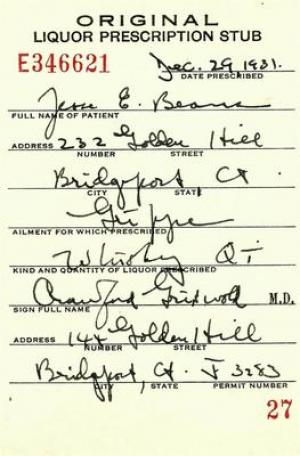 ORIGINAL
LIQUOR PRESCRIPTION STUB
E346621
Dec. 29, 1931.
DATE PRESCRIBED
Jesse E. Beans
FULL NAME OF PATIENT
ADDRESS 232 Golden Hill
NUMBER STREET
Bridgeport Ct.
CITY STATE
Grippe
AILMENT FOR WHICH PRESCRIBED
Whisky QT
KIND AND QUANTITY OF LIQUOR PRESCRIBED
Crawford Griswold M.D.
SIGN FULL NAME
ADDRESS 144 Golden Hill
NUMBER STREET
Bridgeport, Ct. J 3283
CITY, STATE PERMIT NUMBER
27